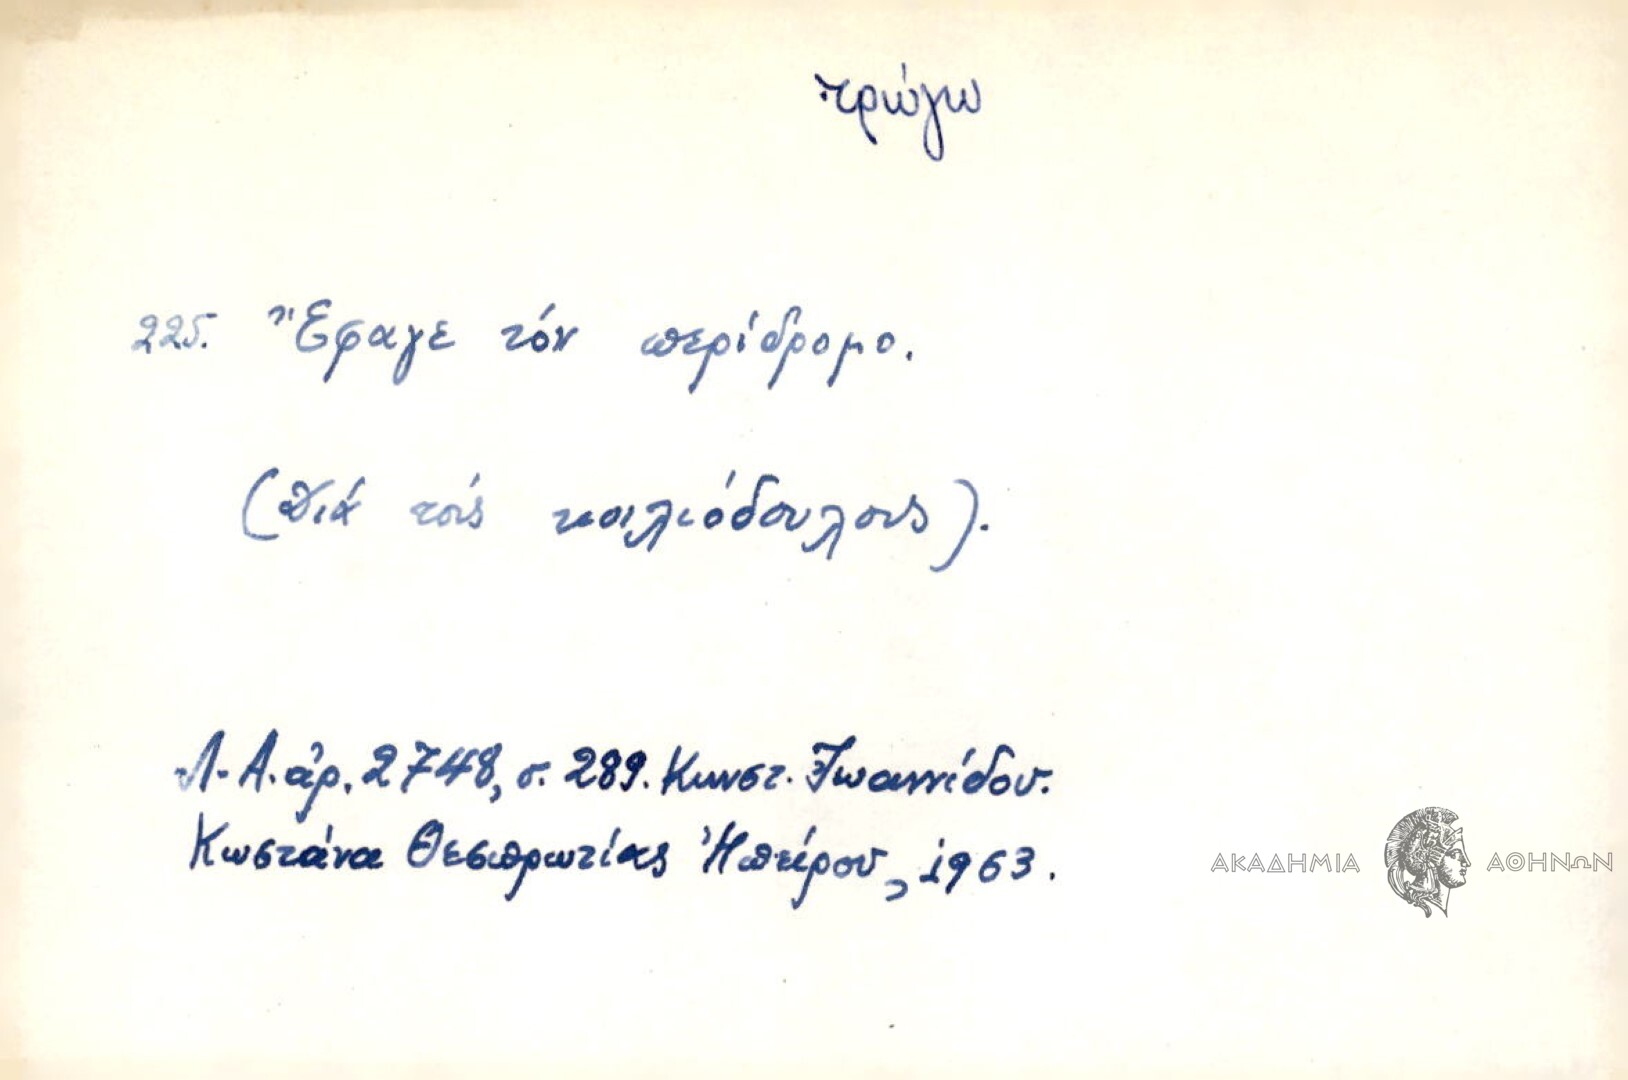 τρώγω
225. Ἔφαγε τόν περίδρομο.
(Διά τούς κοιλιόδουλους).
Λ. Α. ἀρ. 2748, σ. 289. Κωνστ. Ἰωαννίδου.
Κωστάνα Θεσπρωτίας Ἠπείρου, 1963.
ΑΚΑΔΗΜΙΑ ΑΘΗΝΩΝ